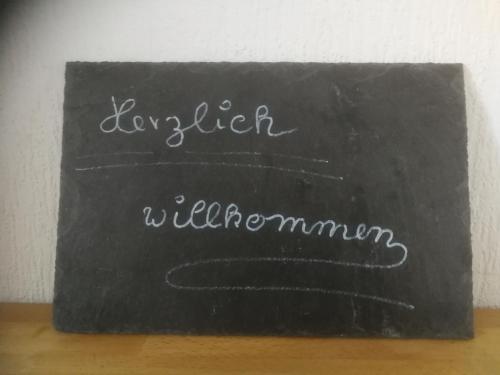 Herzlich
willkommen